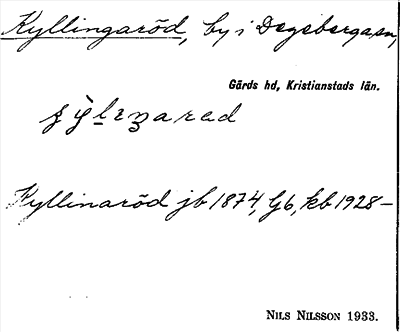 Kyllingaröd, by i Degeberga sn,
Gärds hd, Kristianstads län.
Kyllinaröd jb 1874, G6, kb 1928–
NILS NILSSON 1933.